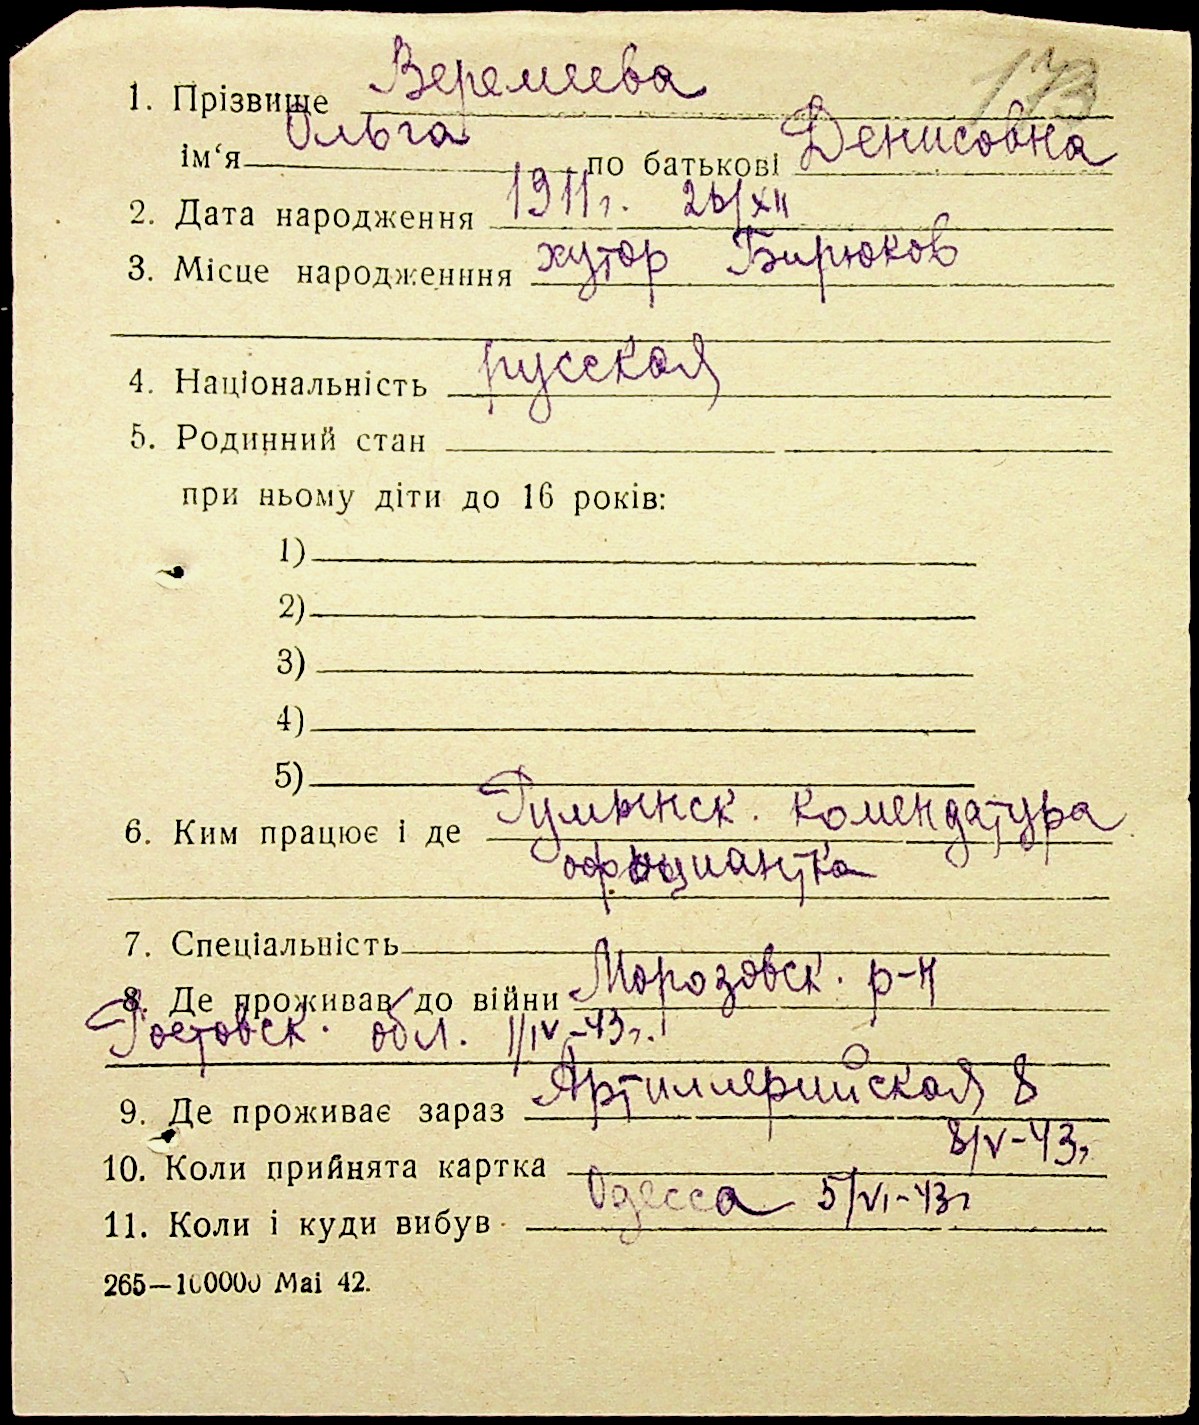 173
1. Прізвище Веремеева
ім‘я Ольга по батькові Денисовна
2. Дата народження 1911г. 26/XII
3. Місце народженння хутор Бирюков
4. Національність русская
5. Родинний стан
при ньому діти до 16 років:
1)
2)
3)
4)
5)
6. Ким працює і де Румынск. комендатура
официантка
7. Спеціальність
8. Де проживав до війни Морозовск. р-н
Ростовск. обл. 1/IV-43г.
9. Де проживає зараз Артиллерийская 8
10. Коли прийнята картка 8/V-43г
11. Коли і куди вибув Одесса 5/VI-43г
265—100000 Mai 42.